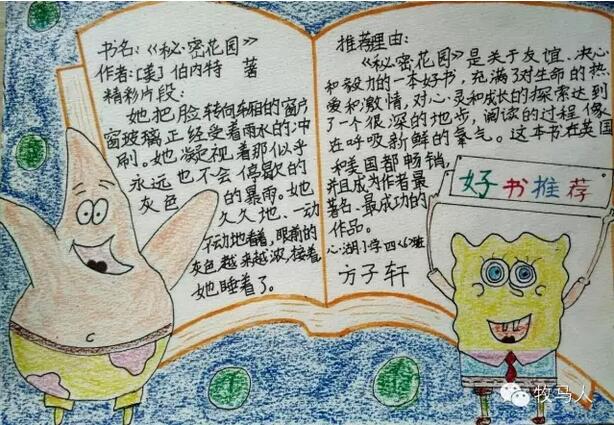 书名:《秘密花园》
作者:[美]伯内特 著
精彩片段:
她把脸转向车厢的窗户
窗玻璃正经受着雨水的冲
刷。她凝视着那似乎
永远也不会停歇的
灰色的暴雨。她
久久地、一动
不动地看着,眼前的
灰色越来越浓,接着
她睡着了。
推荐理由:
《秘密花园》是关于友谊、决心
和毅力的一本好书,充满了对生命的热
爱和激情,对心灵和成长的探索达到
了一个很深的地步,阅读的过程像
在呼吸新鲜的氧气。这本书在英国
和美国都畅销,
并且成为作者最
著名、最成功的
作品。
心湖小学四(6)班
方子轩
好书推荐
牧马人